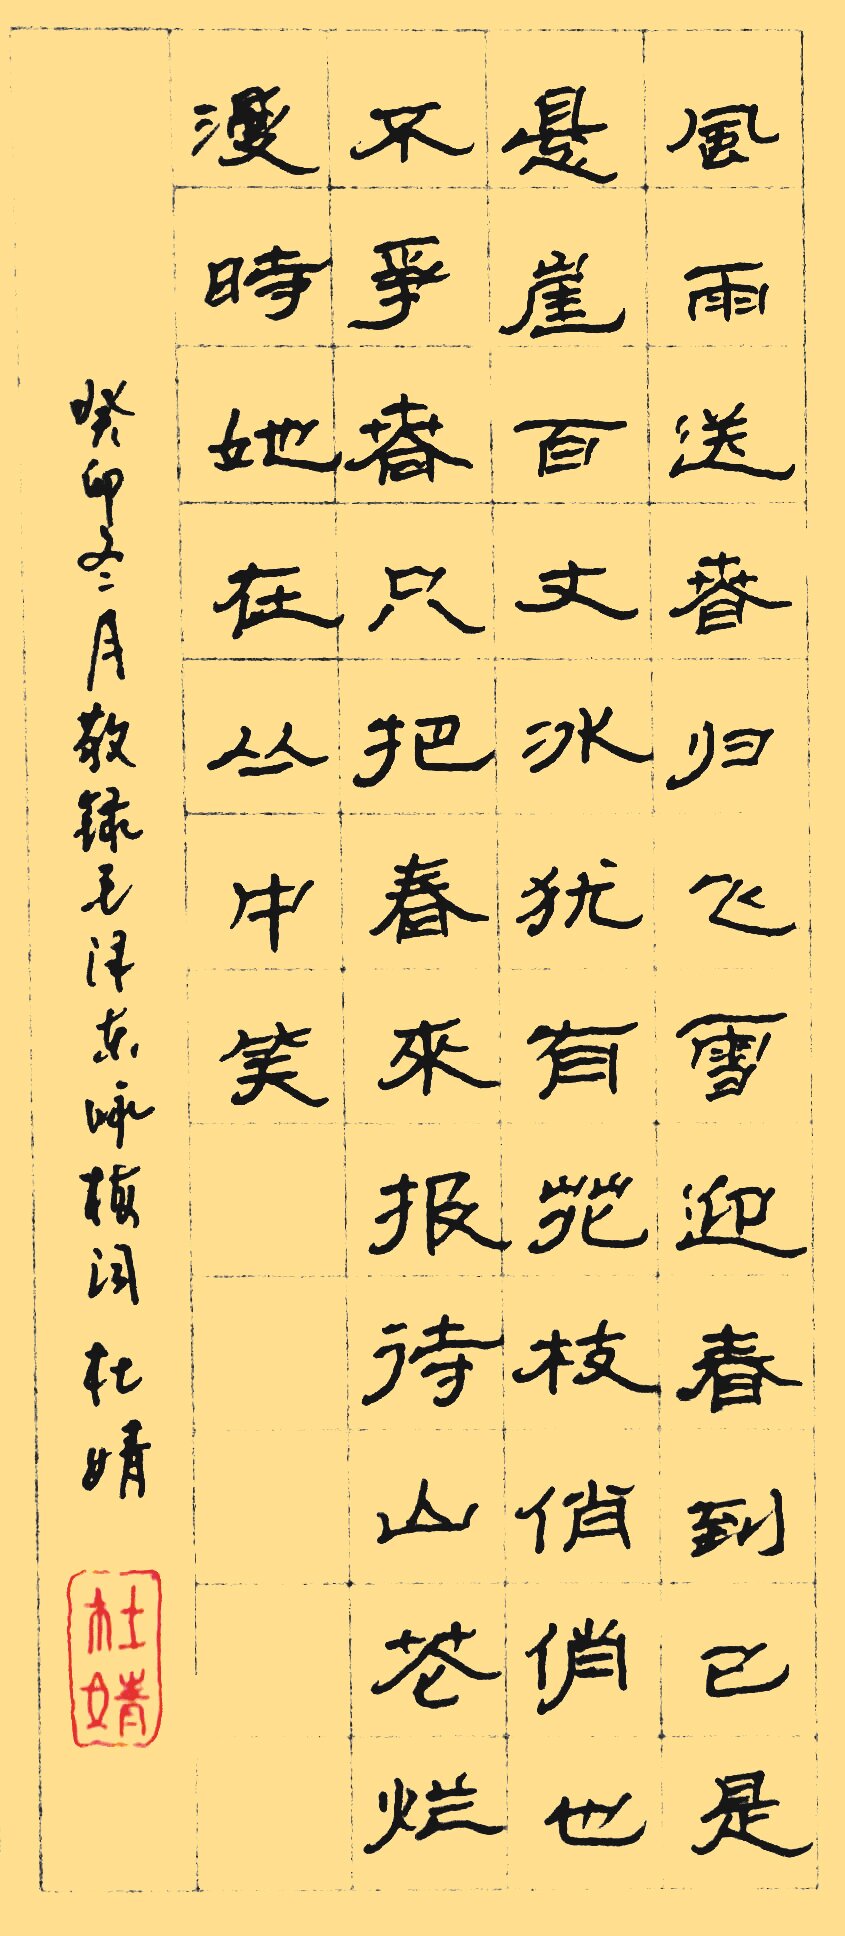 風雨送春归飞雪迎春到已是
悬崖百丈冰犹有花枝俏俏也
不爭春只把春來报待山花烂
漫時她在丛中笑
癸卯冬月敬録毛泽东咏梅词 杜婧
杜婧